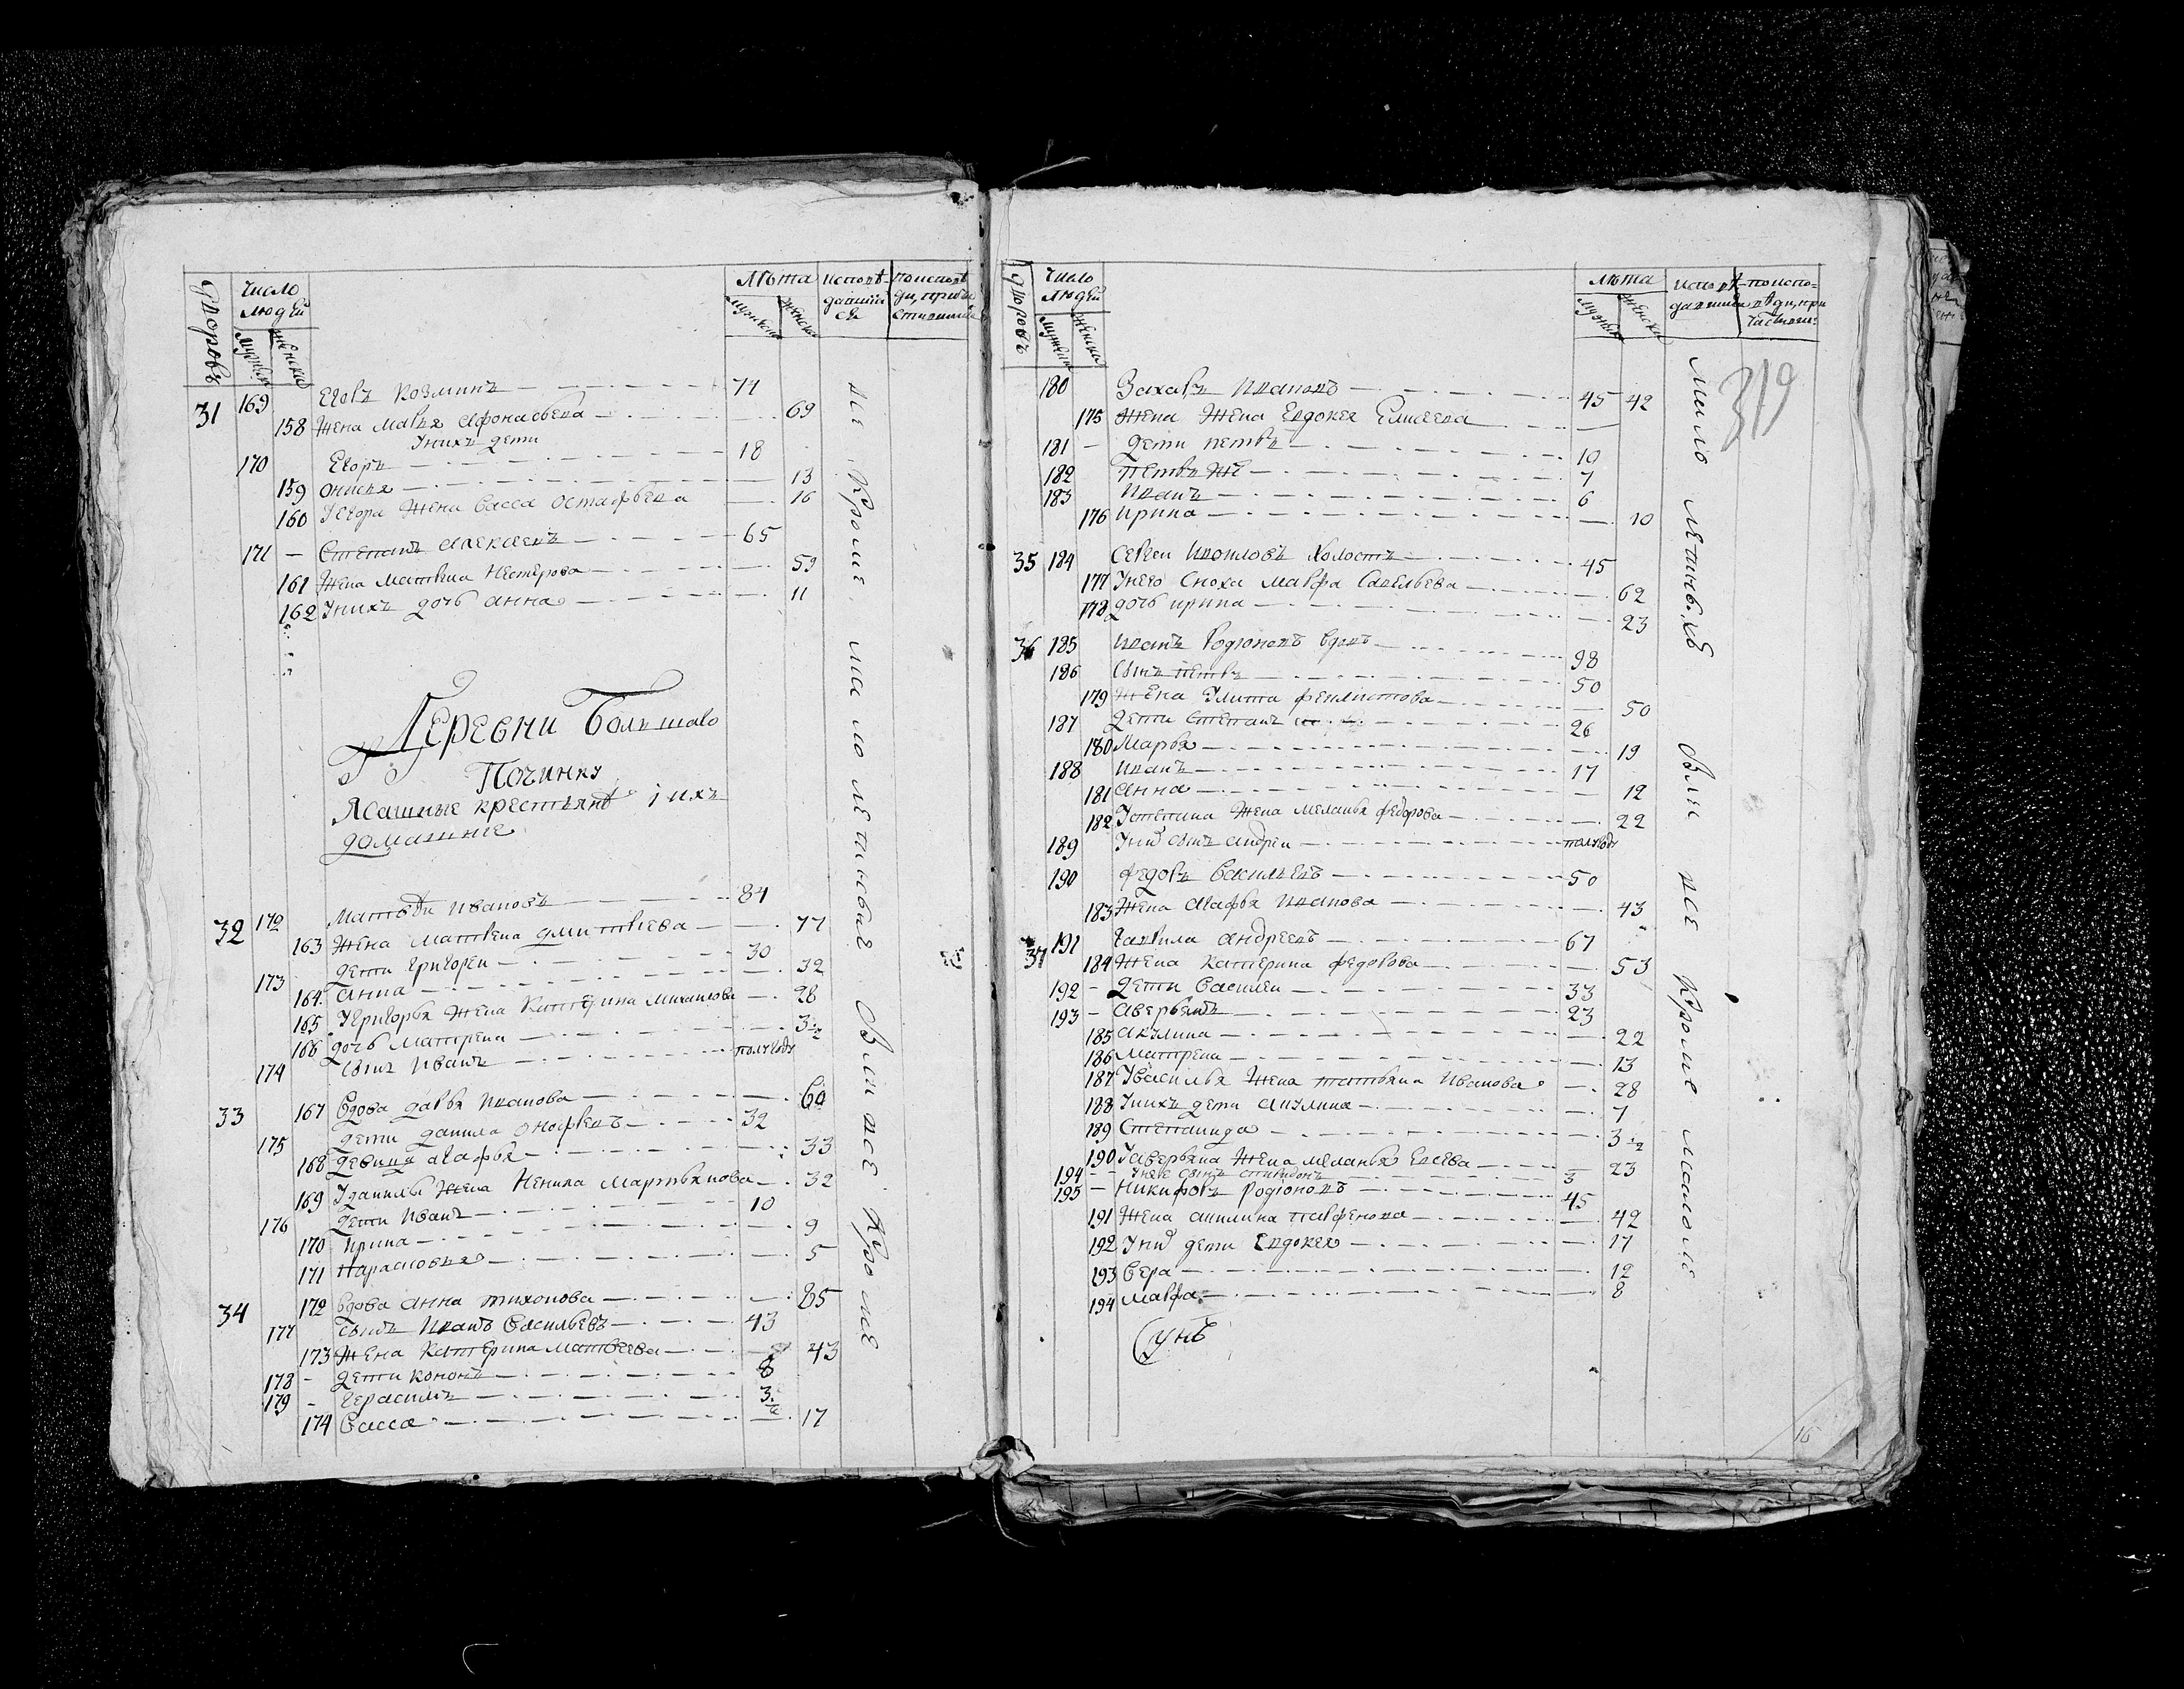 дворовъ
число людей
мужеск
женска
лѣта
мужеск
женска
исповѣдавшійся
31 169 Егоръ Козминъ 71
158 Жена Марья Афонасьева 69
Унихъ дети
170 Егоръ 18
159 Онисья 13
160 УЕгора Жена Васса Остафьева 16
171 Степанъ Алексеевъ 65
161 Жена Матвена Нестерова 59
162 Унихъ дочь Анна 11
Деревни Большаго
Починку
Ясашные крестьянѣ i ихъ
домашние
32 172 Матвѣи Ивановъ 84
163 Жена Матвена Дмитвиева 77
173 дети Григореи 30
164 Анна 32
165 УГригорья Жена Катерина Михаилова 28
166 дочь Матрена 3 1/2
174 сынъ Иванъ полугоду
33 167 Вдова Дарья Иванова 60
175 дети данила Онофревъ 32
168 девица Агафья 33
169 Уданилы Жена Ненила Мартьянова 32
176 дети Иванъ 10
170 Ирина 9
171 Парасковья 5
34 172 Вдова Анна тихонова 85
177 сынъ Иванъ Васильевъ 43
173 Жена Катерина Матвеева 43
178 дети кононъ 8
179 Герасимъ 3 1/2
174 Васса 17
все кроме малолетныхъ Были все кроме
дворовъ
число людей
мужеск
женска
лѣта
мужеск
женска
319
180 Захаръ Ивановъ 45
175 Жена Жена Евдокея Елисеева 42
181 дети петръ 10
182 Петръ Же 7
183 Иванъ 6
176 Ирина 10
35 184 Сергеи холостъ 45
177 Унего Сноха Мавра Савельева 62
178 дочь ирина 23
36 185 Иванъ Родионовъ вдовъ 98
186 Сынъ петръ 50
179 Жена Улита феклистова 50
187 дети Степанъ 26
180 Марья 19
188 Иванъ 17
181 Анна 12
182 Устепана Жена Меланья федорова 22
189 Унихъ сынъ Андреи полугоду
190 Федоръ Васильевъ 50
183 Жена Агафья Иванова 43
37 191 Гаврила Андреевъ 67
184 Жена Катерина Федорова 53
192 дети Василеи 33
193 Аверьянъ 23
185 Акулина 22
186 Матрена 13
187 УВасилья Жена татьяна Иванова 28
188 Унихъ дети Акулина 7
189 Степанида 3 1/2
190 УАверьяна Жена Меланья Евсева 23
194 Унеге сынъ спиридонъ
195 Никифоръ Родионовъ 45
191 Жена Акилина парфенова 42
192 Унихъ дети Евдокея 17
193 Вера 12
194 Мавра 8
малолетныхъ Были все кроме малоле
16